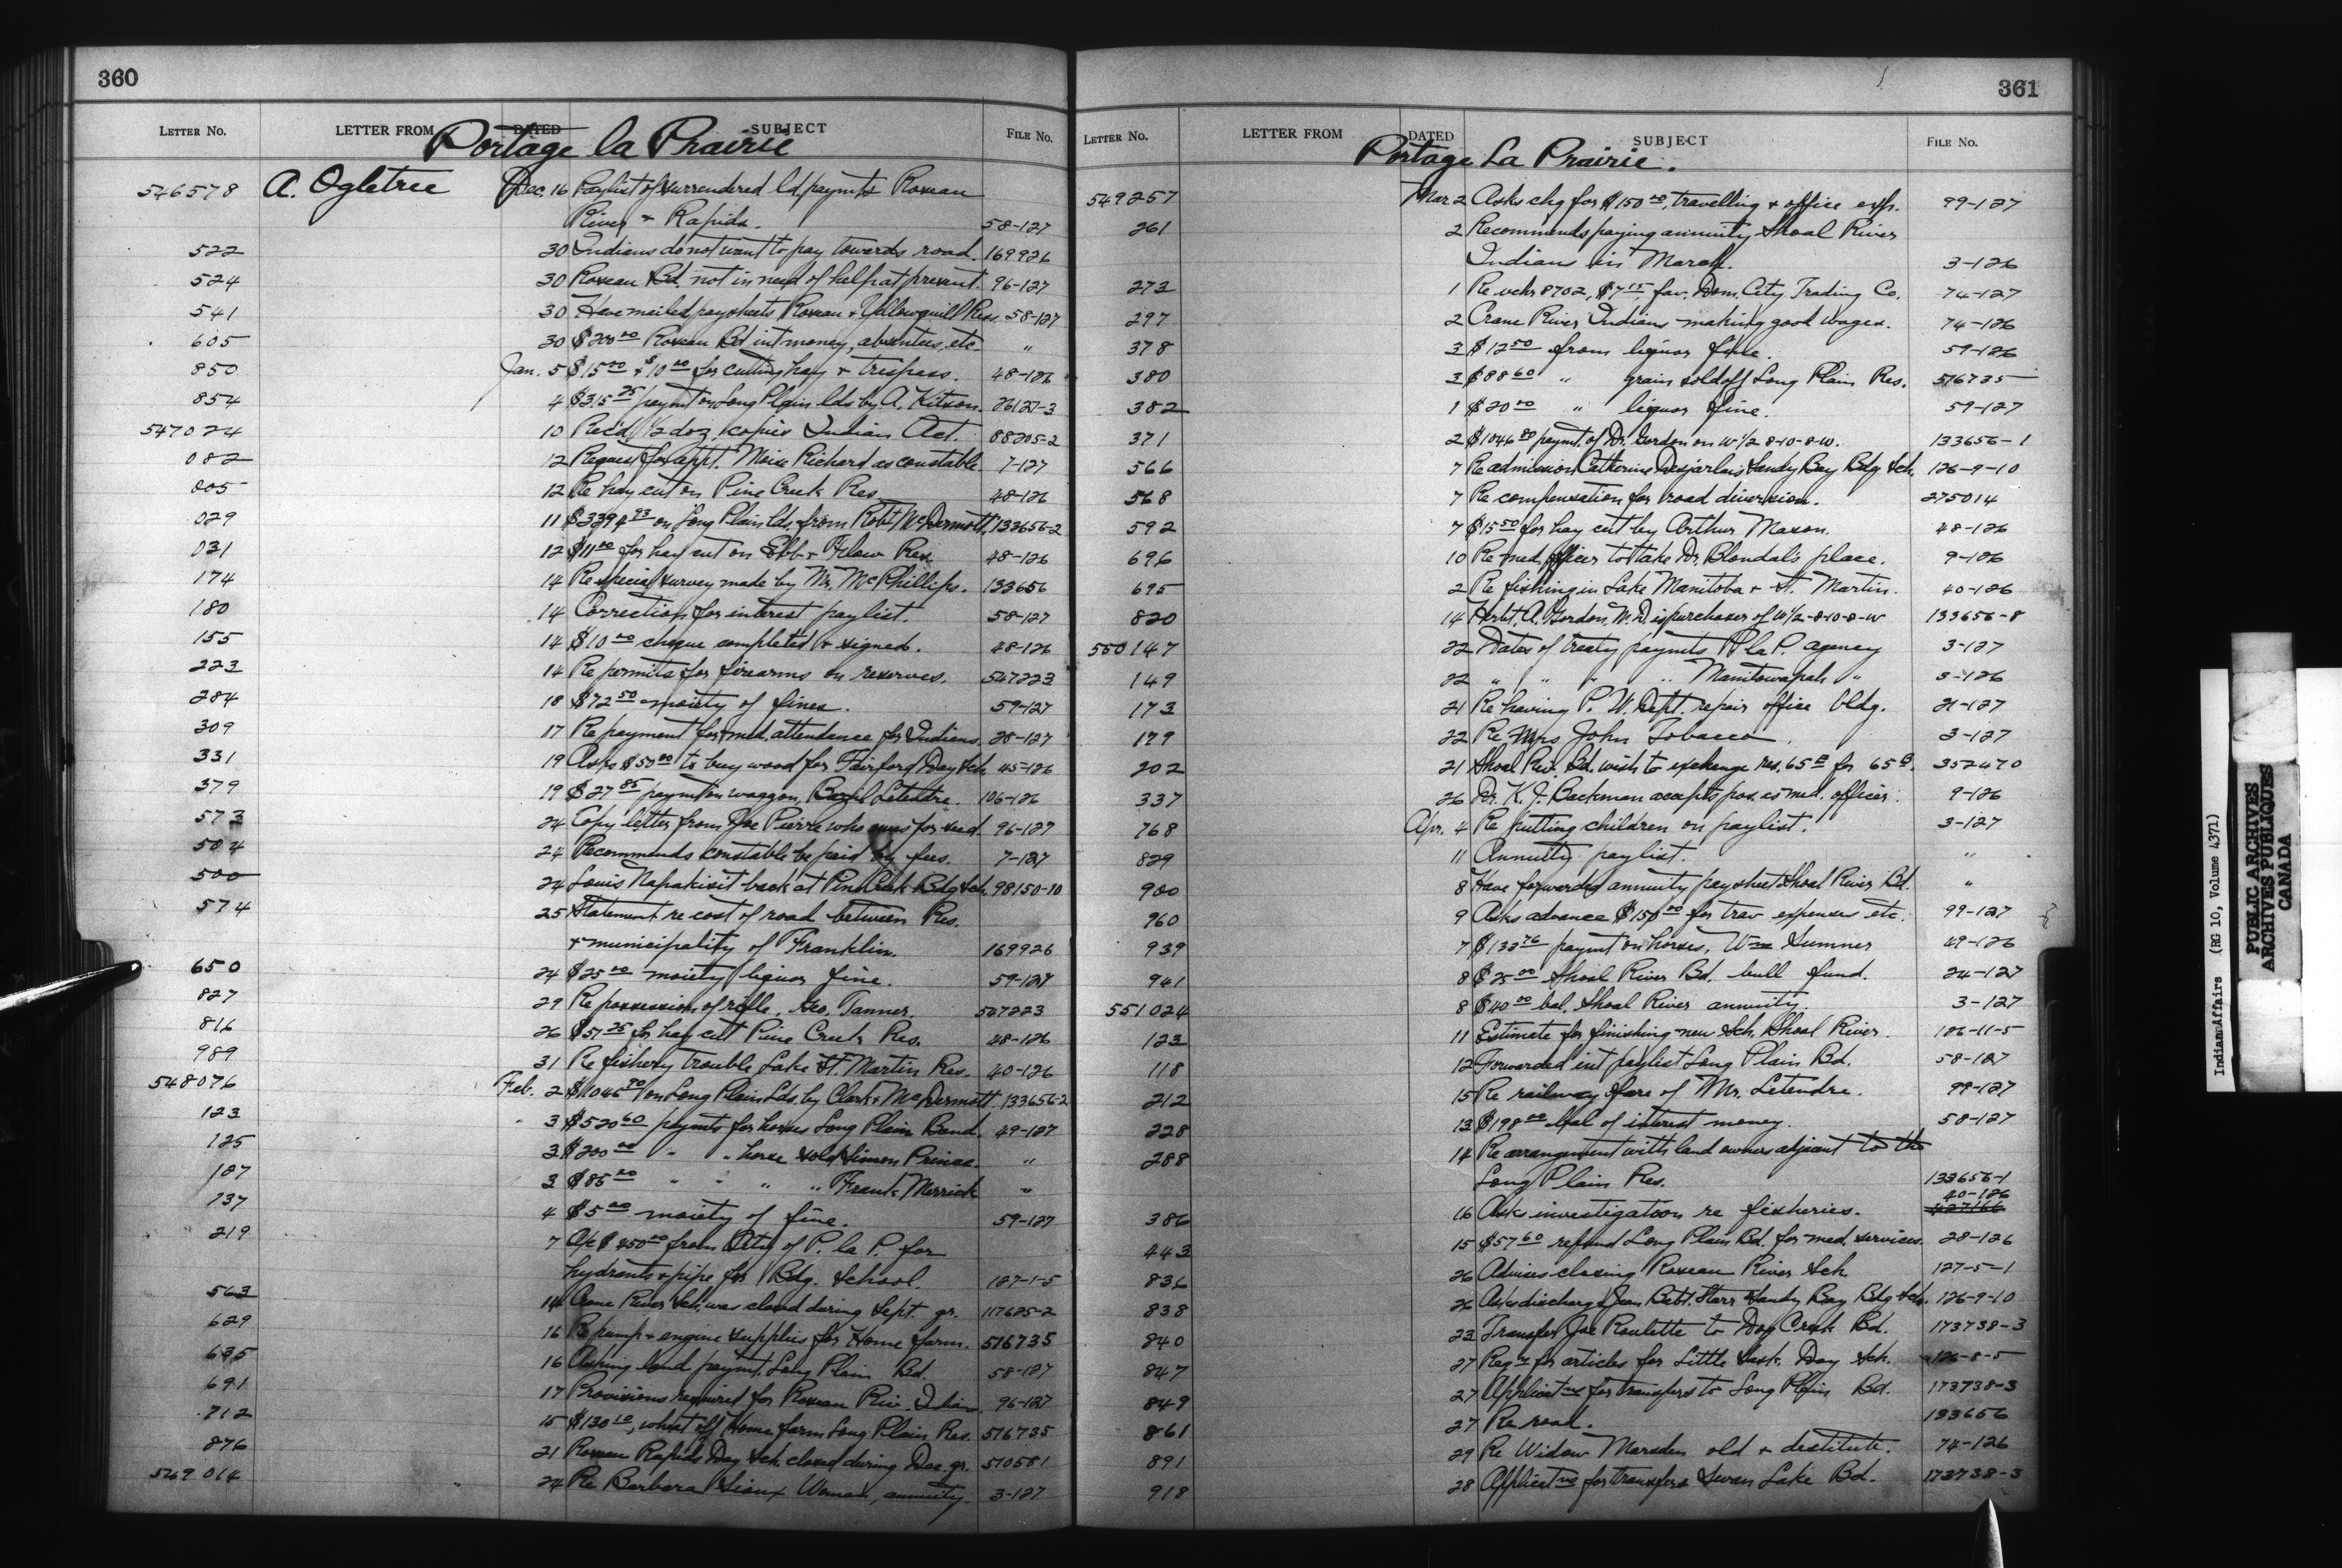 360
LETTER NO. LETTER FROM DATED SUBJECT FILE No.
Portage la Prairie
546578 A. Ogletree Dec. 16 Paylist of surrendered ld paymts Roseau
River & Rapids. 58-127
522 30 Indians do not want to pay towards road. 169926
524 30 Roseau Bd. not in need of help at present. 96-127
541 30 Have mailed paysheets Roseau & Yellowquill Res. 58-127
605 30 $200.00 Roseau Bd int money, absentees, etc. "
850 Jan. 5 $15.00 & $10.00 for cutting hay & trespass. 48-126
854 4 $315.25 paymt on Long Plain lds by A. Kitson. 26127-3
547024 10 Rec'd 1/2 doz. copies Indian Act. 88205-2
082 12 Request for appt. Moise Richard as constable 7-127
005 12 Re hay cut on Pine Creek Res. 48-126
029 11 $3394.93 on Long Plain lds. from Robt McDermott. 133656-2
031 12 $11.00 for hay cut on Ebb & Flow Res. 48-126
174 14 Re special survey made by Mr. McPhillips. 133656
180 14 Correction for interest paylist. 58-127
155 14 $10.00 cheque completed & signed. 48-126
223 14 Re permits for firearms on reserves. 547223
284 18 $72.50 moiety of fines. 59-127
309 17 Re payment for med. attendance for Indians. 28-127
331 19 Asks $50.00 to buy wood for Fairford Day Sch. 45-126
379 19 $27.85 paymt on waggon, Bazil Letendre. 106-126
573 24 Copy letter from Joe Pierre who owes for seed. 96-127
504 24 Recommends constable be paid by fees. 7-127
500 24 Louis Napakisit back at Pine Creek Bdg Sch. 98150-10
574 25 Statement re cost of road between Res.
& municipality of Franklin. 169926
650 24 $25.00 moiety liquor fine. 59-127
827 29 Re possession of rifle, Geo. Tanner. 547223
816 26 $57.25 for hay cut Pine Creek Res. 48-126
989 31 Re fishery trouble Lake St. Martin Res. 40-126
548076 Feb. 2 $1046.90 on Long Plain Lds. by Clark & McDermott. 133656-2
123 3 $520.60 paymts for horses Long Plain Band. 49-127
125 3 $200.00 " " horse sold Simon Prince. "
107 3 $85.00 " " " " Frank Merrick "
737 4 $5.00 moiety of fine. 59-127
219 7 A/c $450.00 from City of P. la P. for
hydrants & pipe for Bdg. School. 127-1-5
563 14 Crane River Sch. was closed during Sept. qr. 117625-2
629 16 Re pump & engine supplies for Home farm. 516735
635 16 Asking land paymt. Long Plain Bd. 58-127
691 17 Provisions required for Roseau Riv. Indians 96-127
712 15 $130.10, wheat off Home farm Long Plain Res. 516735
876 21 Roseau Rapids Day Sch. closed during Dec. qr. 510581
549014 24 Re Barbara Sioux Woman, annuity. 3-127
361
LETTER NO. LETTER FROM DATED SUBJECT FILE No.
Portage La Prairie.
549257 Mar 2 Asks chq for $150.00, travelling & office exps. 99-127
261 2 Recommends paying annuity Shoal River
Indians in March. 3-126
273 1 Re vchr 8702, $7.15, fav. Dom. City Trading Co. 74-127
297 2 Crane River Indians making good wages. 74-126
378 3 $12.50 from liquor fine. 59-126
380 3 $88.60 " grain sold off Long Plain Res. 516735
382 1 $20.00 " liquor fine. 59-127
371 2 $1046.80 paymt. of Dr. Gordon on W 1/2 8-10-8-W. 133656-1
566 7 Re admission Catherine Desjarlais Sandy Bay Bdg Sch. 126-9-10
568 7 Re compensation for road diversion. 275014
592 7 $15.50 for hay cut by Arthur Mason. 48-126
696 10 Re med. officer to take Dr. Blondal's place. 9-126
695 2 Re fishing in Lake Manitoba & St. Martin. 40-126
820 14 Herbt. A. Gordon, M.D. is purchaser of W 1/2-8-10-8-W 133656-8
550147 22 Dates of treaty paymts P. la P. agency 3-127
149 22 " " " " Manitowapah " 3-126
173 21 Re having P. W. Dept. repair office bldg. 21-127
179 22 Re Mrs John Tobacco. 3-127
202 21 Shoal Riv. Bd. wish to exchange res. 65 for 65. 352470
337 26 Dr. K. J. Backman accepts pos. as med. officer. 9-126
768 Apr. 4 Re putting children on paylist. 3-127
829 11 Annuity paylist. "
900 8 Have forwarded annuity paysheet Shoal River Bd. "
960 9 Asks advance $150.00 for trav expenses etc. 99-127
939 7 $132.76 paymt on horses, Wm Sumner 49-126
941 8 $25.00 Shoal River Bd. bull fund. 24-127
551024 8 $40.00 bal. Shoal River annuity. 3-127
123 11 Estimate for finishing new Sch. Shoal River. 126-11-5
118 12 Forwarded int paylist Long Plain Bd. 58-127
212 15 Re railway fare of Mr. Letendre. 99-127
228 13 $198.00 bal of interest money. 58-127
288 14 Re arrangement with land owners adjacent to the
Long Plain Res. 133656-1
40-126
386 16 Asks investigation re fisheries. 427166
443 15 $57.60 refund Long Plain Bd. for med. services. 28-126
836 26 Advises closing Roseau River Sch. 127-5-1
838 26 Asks discharge Jean Bebt. Starr Sandy Bay Bdg Sch. 126-9-10
840 23 Transfer Joe Roulette to Dog Creek Bd. 173738-3
847 27 Reqn for articles for Little Sask. Day Sch. 126-8-5
849 27 Applicatns for transfers to Long Plain Bd. 173738-3
861 27 Re road. 133656
891 29 Re Widow Marsden old & destitute. 74-126
918 28 Applicatns for transfers Swan Lake Bd. 173738-3
Indian Affairs (RG 10, Volume 4371)
PUBLIC ARCHIVES
ARCHIVES PUBLIQUES
CANADA